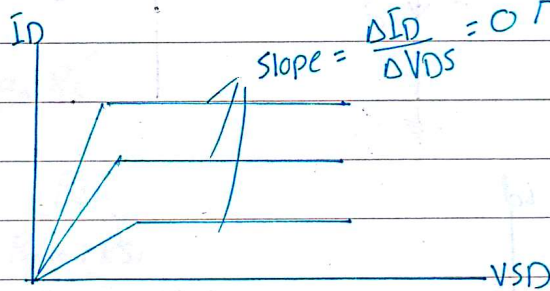 ID
slope = ΔID / ΔVDS = 0
VSD